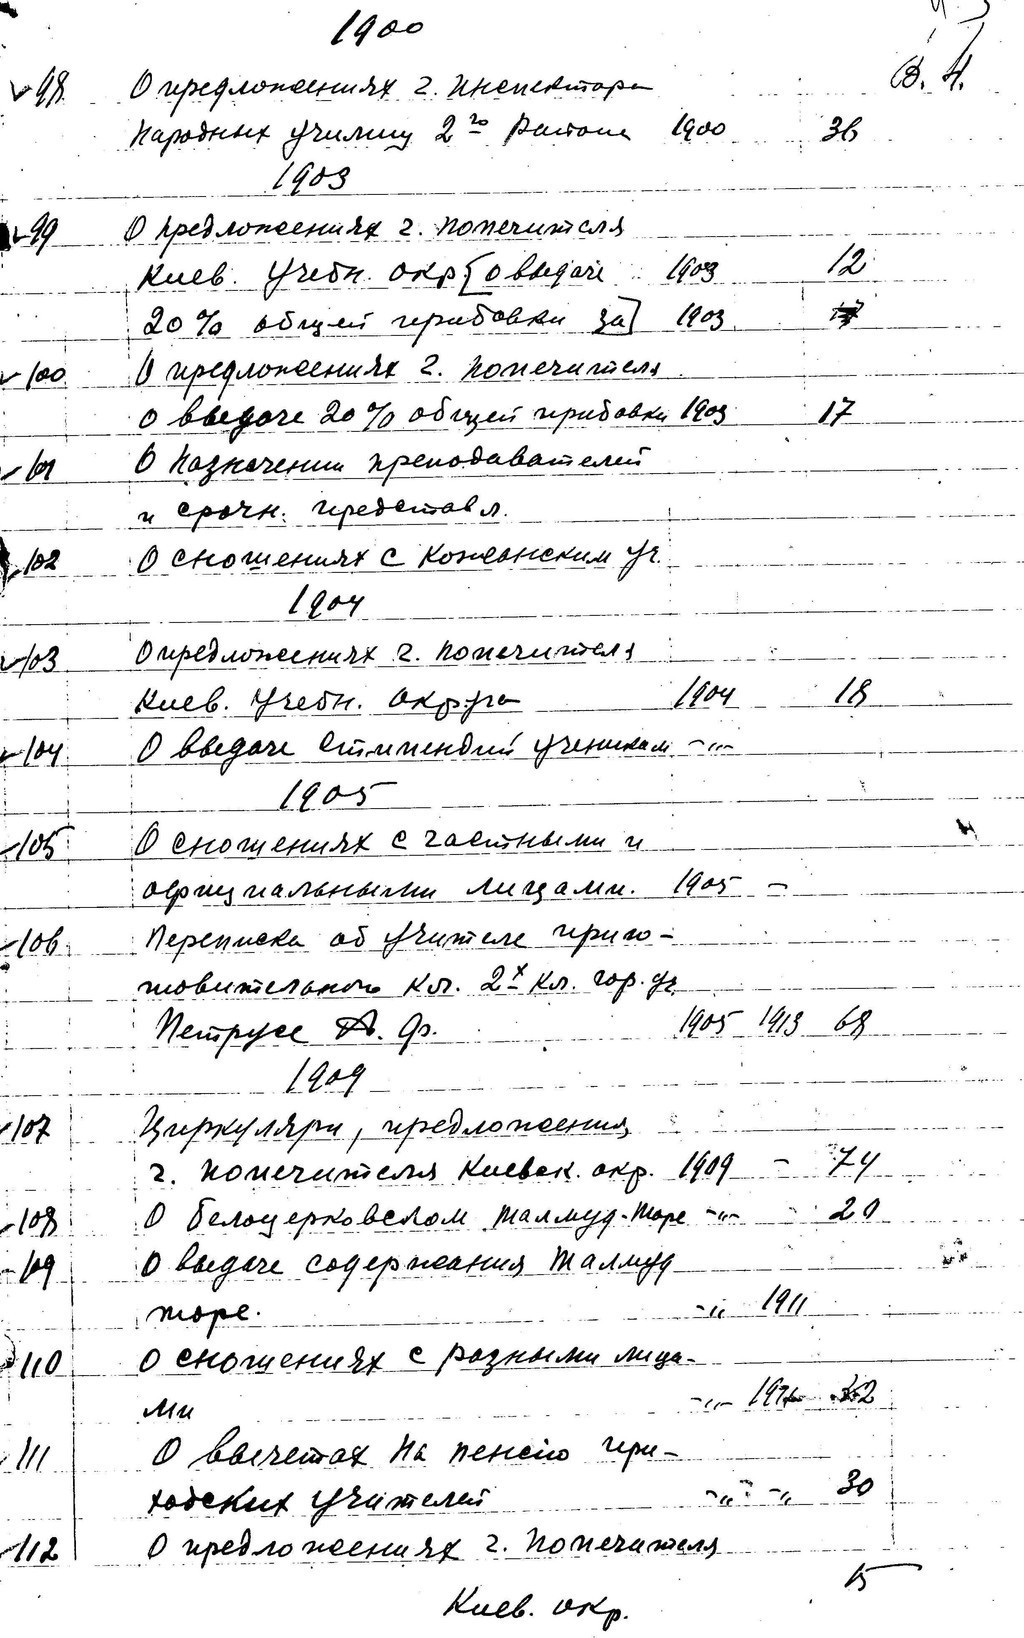 1900
В. Н.
98 О предложениях г. Инспектора
Народных училищ 2го района 1900 36
1903
99 О предложениях г. Попечителя
Киев. Учебн. окр [о выдаче 1903 12
20% общей прибавки за] 1903
100 О предложениях г. Попечителя
о выдаче 20% общей прибавки 1903 17
101 О назначении преподавателей
и срочн. представл.
102 О сношениях с Кожанским уч.
1904
103 О предложениях г. Попечителя
Киев. Учебн. округа 1904 18
104 О выдаче стипендий ученикам -"-
1905
105 О сношениях с частными и
официальными лицами. 1905 -
106 Переписка об учителе приго-
товительного кл. 2х кл. гор. уч.
Петрусе А. Ф. 1905 1913 68
1909
107 Циркуляри, предложения
г. Попечителя Киевск. окр. 1909 - 74
108 О белоцерковском Талмуд-Торе -"- 20
109 О выдаче содержания Талмуд
торе. -"- 1911
110 О сношениях с разными лица-
ми -"-
111 О вычетах на пенсію при-
ходских учителей -"- -"- 30
112 О предложениях г. Попечителя
Киев. окр. 15